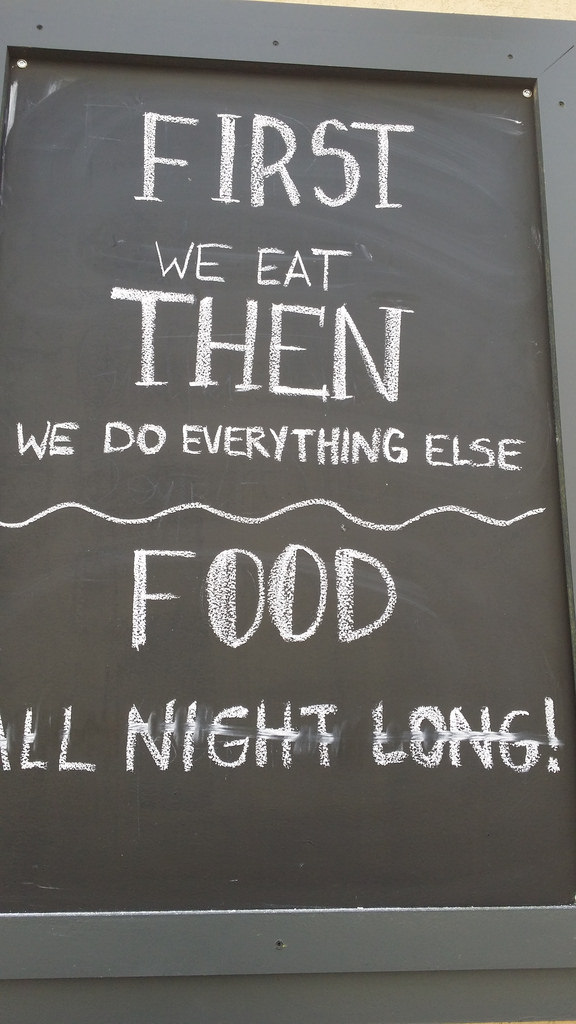 FIRST
WE EAT
THEN
WE DO EVERYTHING ELSE
FOOD
ALL NIGHT LONG!